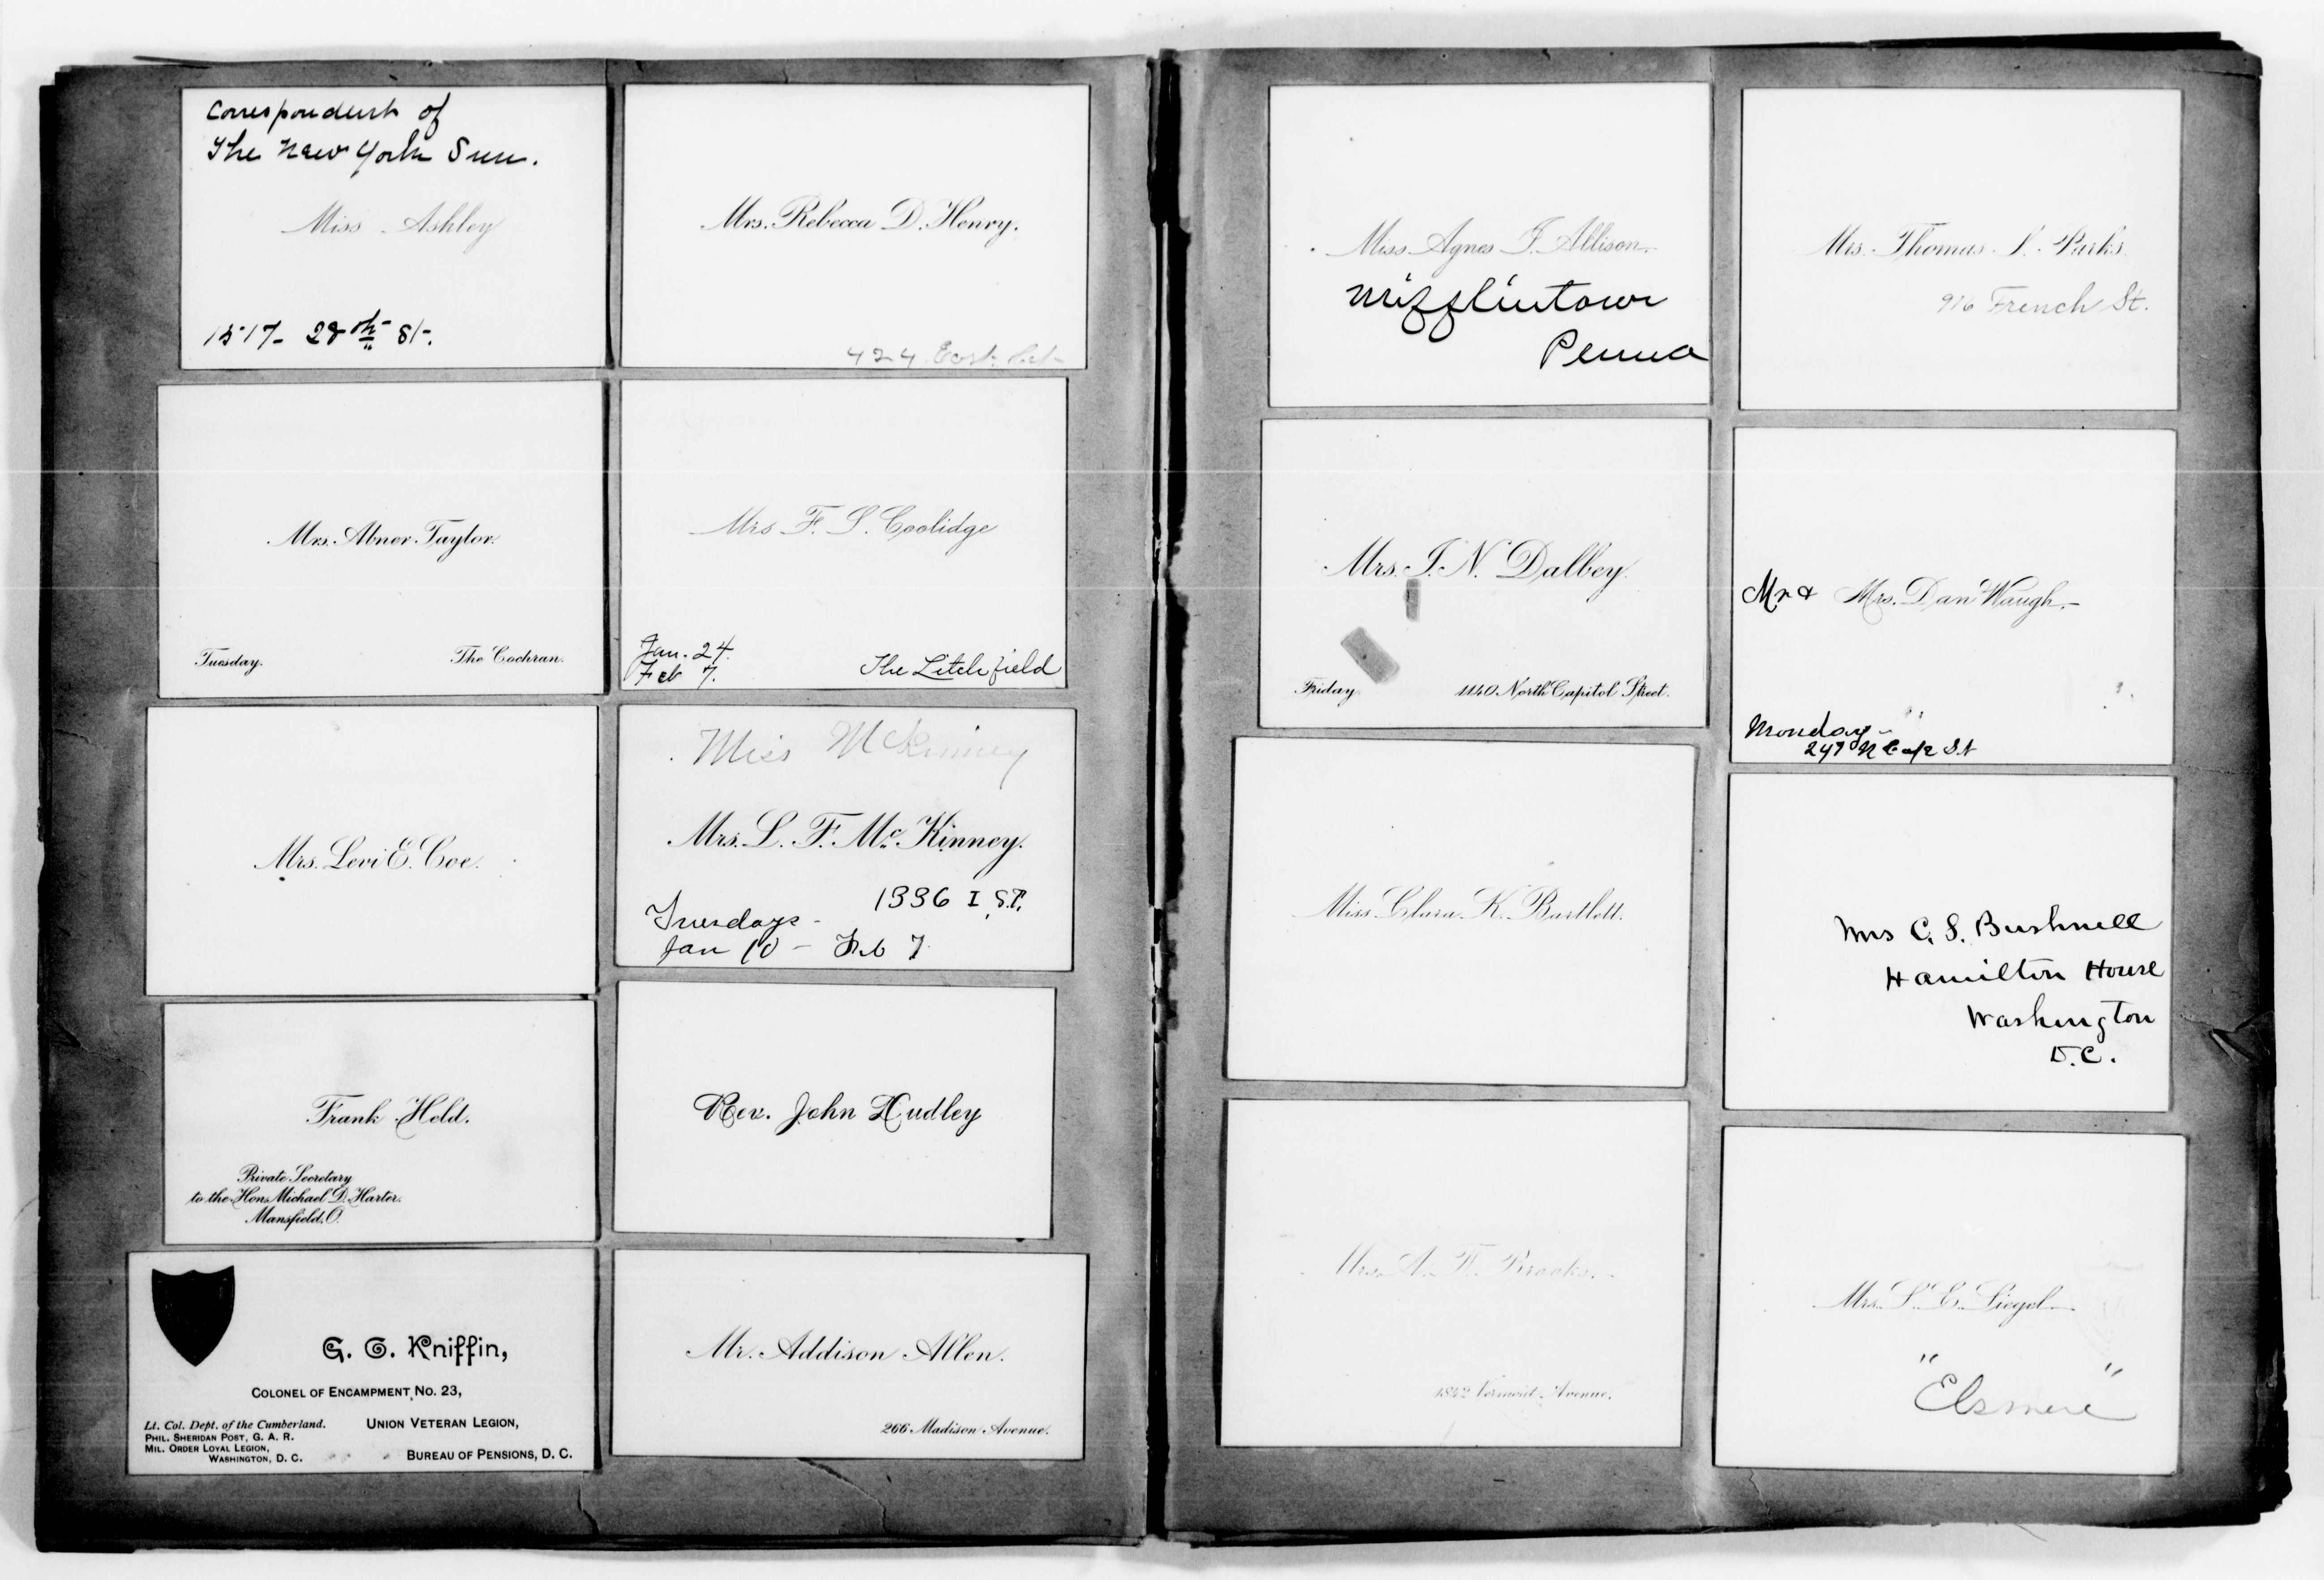 Correspondent of
The New York Sun.
Miss Ashley
1517- 28th St.
Mrs. Rebecca D. Henry.
424 East
Mrs. Abner Taylor.
Tuesday.
The Cochran.
Mrs F. S. Coolidge
Jan. 24.
Feb 7.
The Litchfield
Mrs. Levi E. Coe.
Miss McKinney
Mrs. L. F. McKinney.
1336 I St.
Tuesdays -
Jan 10 - Feb 7
Frank Held.
Private Secretary
to the Hon. Michael D. Harter.
Mansfield, O.
Rev. John Hudley
G. C. Kniffin,
COLONEL OF ENCAMPMENT NO. 23,
Lt. Col. Dept. of the Cumberland.
UNION VETERAN LEGION,
PHIL. SHERIDAN POST, G. A. R.
MIL. ORDER LOYAL LEGION,
WASHINGTON, D. C.
BUREAU OF PENSIONS, D. C.
Mr. Addison Allen.
266 Madison Avenue.
Miss Agnes J. Allison.
Mifflintown
Penna
Mrs. Thomas L. Parks
916 French St.
Mrs. I. N. Dalbey.
Friday.
1140 North Capitol Street.
Mr & Mrs. Dan Waugh.
Monday -
247 N Cap St
Miss Clara K. Bartlett.
Mrs C. S. Bushnell
Hamilton House
Washington
D.C.
Mrs. A. F. Brooks.
1842 Vermont Avenue.
Mrs. S. E. Siegel
"Elsmere"